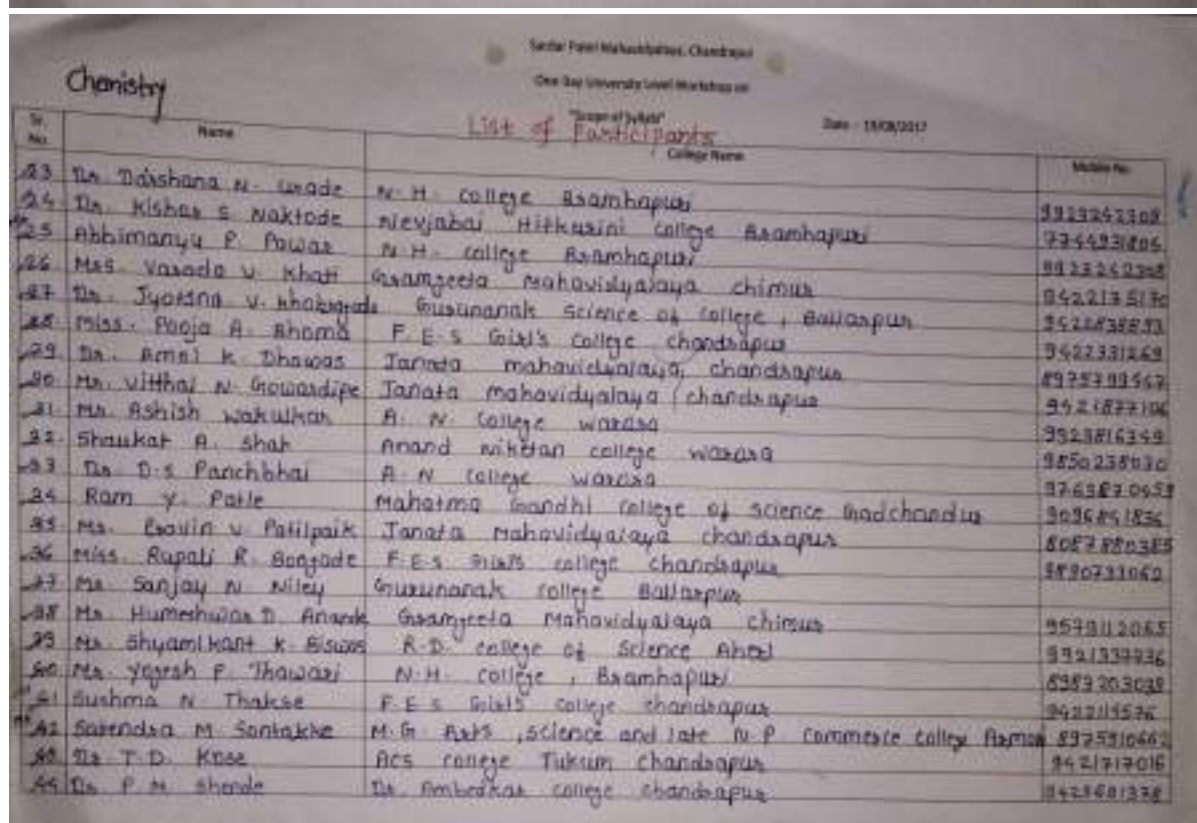 Sardar Patel Mahavidyalaya, Chandrapur
One Day University Level Workshop on
Chemistry
"Scope of Syllabi" Date - 19/08/2017
List of Participants
Sr. No. Name College Name Mobile No.
23 Dr. Darshana N. Urade N.H. College Bramhapuri
24. Dr. Kishor S Naktode Nevjabai Hitkarini College Bramhapuri
25 Abhimanyu P. Pawar N.H. college Bramhapuri
26 Mrs. Varada V. Khati Gramgeeta Mahavidyalaya chimur
27 Dr. Jyotsna V. Gurunanak Science of College, Ballarpur
28. Miss. Pooja A. F.E.S Girl's College chandrapur
29. Dr. Amol K Dhawas Janata mahavidyalaya, chandrapur
30. Mr. Vitthal N Gowardipe Janata mahavidyalaya chandrapur 9421877106
31. Mr. Ashish Wakulkar A. N. College warora 9923816349
32. Shaukat A. Shah Anand niketan college warora
33 Dr. D.S Panchbhai A.N College warora
34 Ram Y. Patle Mahatma Gandhi College of science Gadchandur
35 Mr. V. Patilpaik Janata Mahavidyalaya chandrapur 8087880385
36 Miss. Rupali R. F.E.S Girl's college chandrapur
37 Mr Sanjay N Niley Gurunanak College Ballarpur
38 Mr Humeshwar D. Anande Gramgeeta Mahavidyalaya chimur 9579112065
39 Mr. Shyamlkant K. Biswas R.D. college of Science
40 Mr. Yogesh P. Thawari N.H. college, Bramhapuri
41 Sushma N Thakre F.E.S Girl's College chandrapur
42 M Sontakke M.G. Arts, science and late N.P. Commerce College 8975910662
43 Dr T.D. Kose ACS College Tukum Chandrapur 9421717016
44 Dr P.M Shende Dr. Ambedkar college chandrapur